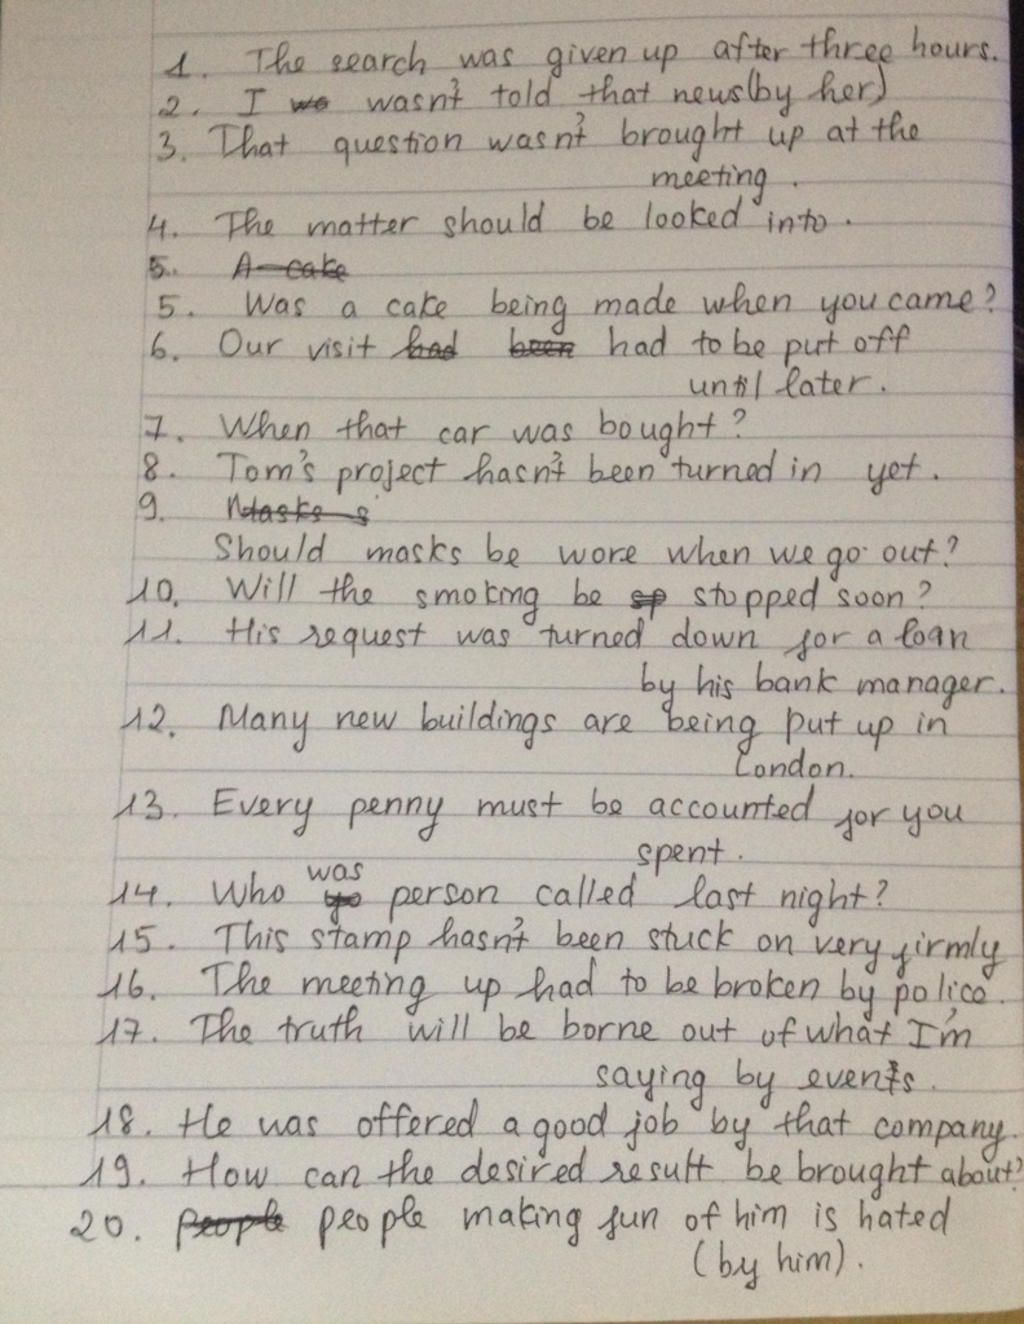 1. The search was given up after three hours.
2. I wo wasn't told that news (by her)
3. That question wasn't brought up at the
meeting.
4. The matter should be looked into.
5. A cake
5. Was a cake being made when you came?
6. Our visit had been had to be put off
until later.
7. When that car was bought?
8. Tom's project hasn't been turned in yet.
9. Masks s
Should masks be wore when we go out?
10. Will the smoking be sp stopped soon?
11. His request was turned down for a loan
by his bank manager.
12. Many new buildings are being put up in
London.
13. Every penny must be accounted for you
spent.
was
14. Who yo person called last night?
15. This stamp hasn't been stuck on very firmly
16. The meeting up had to be broken by police.
17. The truth will be borne out of what I'm
saying by events.
18. He was offered a good job by that company.
19. How can the desired result be brought about?
20. people people making fun of him is hated
(by him).